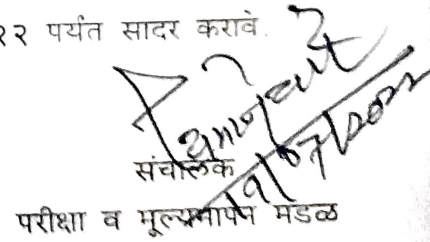 २२ पर्यंत सादर करावे.
संचालक
परीक्षा व मूल्यमापन मंडळ